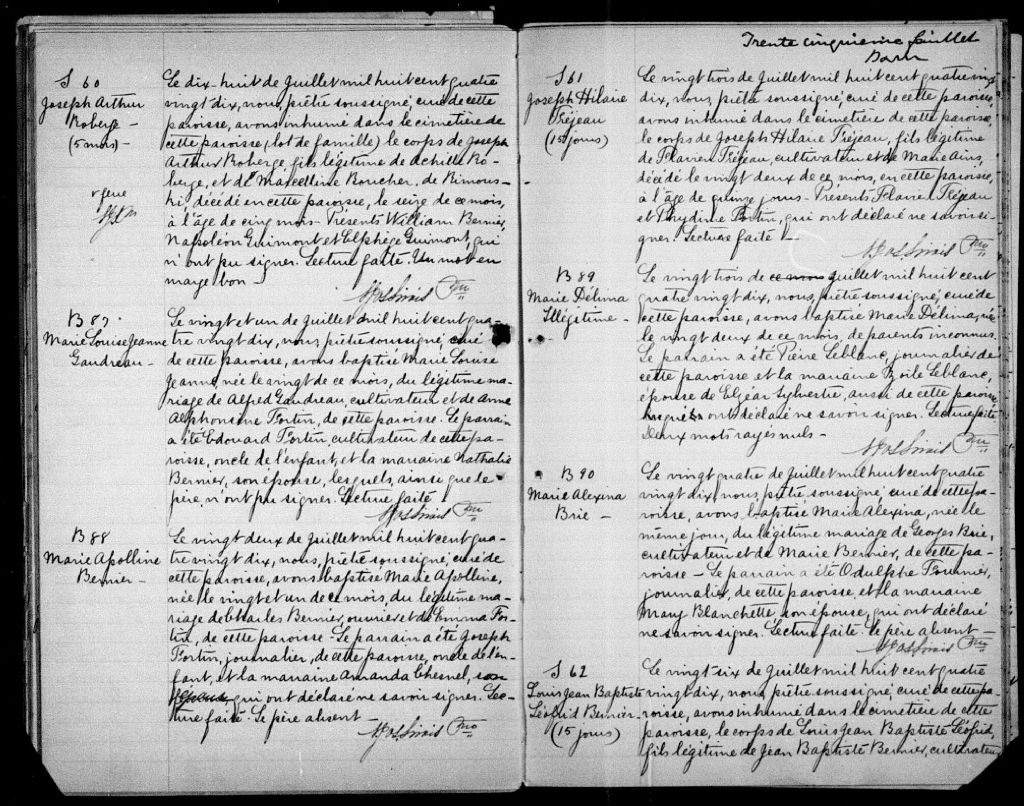 S 60
Joseph Arthur
Roberge -
(5 mois) -
Le dix-huit de Juillet mil huit cent quatre
vingt dix, nous, prêtre soussigné, curé de cette
paroisse, avons inhumé dans le cimetière de
cette paroisse (lot de famille) le corps de Joseph
Arthur Roberge, fils légitime de Achille Ro-
berge, et de Marcelline Boucher, de Rimous-
ki, décédé en cette paroisse, le seize de ce mois,
à l'âge de cinq mois - Présents William Bernier,
Napoléon Guimont et Elphège Guimont, qui
n'ont pu signer. Lecture faite. Un mot en
marge bon -
Ptre
B 87
Marie Louise Jeanne
Gaudreau -
Le vingt et un de Juillet mil huit cent qua-
tre vingt dix, nous, prêtre soussigné, curé
de cette paroisse, avons baptisé Marie Louise
Jeanne, née le vingt de ce mois, du légitime ma-
riage de Alfred Gaudreau, cultivateur et de Anne
Alphonsine Fortin, de cette paroisse. Le parrain
a été Edouard Fortin, cultivateur de cette pa-
roisse, oncle de l'enfant, et la marraine Nathalie
Bernier, son épouse, lesquels, ainsi que le
père n'ont pu signer. Lecture faite
Ptre
B 88
Marie Apolline
Bernier -
Le vingt deux de Juillet mil huit cent qua-
tre vingt dix, nous, prêtre soussigné, curé de
cette paroisse, avons baptisé Marie Apolline,
née le vingt et un de ce mois, du légitime ma-
riage de Charles Bernier, ouvrier et de Emma For-
tin, de cette paroisse - Le parrain a été Joseph
Fortin, journalier, de cette paroisse, oncle de l'en-
fant, et la marraine Amanda Chesnel, son
épouse, qui ont déclaré ne savoir signer. Lec-
ture faite. Le père absent -
Ptre
Trente cinquième feuillet
S 61
Joseph Hilaire
Fréjeau
(15 jours)
Le vingt trois de Juillet mil huit cent quatre vingt
dix, nous, prêtre soussigné, curé de cette paroisse,
avons inhumé dans le cimetière de cette paroisse,
le corps de Joseph Hilaire Fréjeau, fils légitime
de Flavien Fréjeau, cultivateur et de Marie
décédé le vingt deux de ce mois, en cette paroisse,
à l'âge de quinze jours - Présents Flavien Fréjeau
et Phydime Fortin, qui ont déclaré ne savoir si-
gner. Lecture faite
Ptre
B 89
Marie Délima
Illégitime -
Le vingt trois de ce mois Juillet mil huit cent
quatre vingt dix, nous, prêtre soussigné, curé de
cette paroisse, avons baptisé Marie Délima, née
le vingt deux de ce mois, de parents inconnus.
Le parrain a été Pierre Leblanc, journalier de
cette paroisse et la marraine Zoïle Leblanc,
épouse de Elzéar Sylvestre, aussi de cette paroisse
lesquels ont déclaré ne savoir signer. Lecture faite
Deux mots rayés nuls -
Ptre
B 90
Marie Alexina
Brie -
Le vingt quatre de Juillet mil huit cent quatre
vingt dix, nous, prêtre soussigné, curé de cette pa-
roisse, avons baptisé Marie Alexina, née le
même jour, du légitime mariage de Georges Brie,
cultivateur et de Marie Bernier, de cette pa-
roisse - Le parrain a été Odulphe Fournier,
journalier, de cette paroisse, et la marraine
Mary Blanchette son épouse, qui ont déclaré
ne savoir signer. Lecture faite. Le père absent -
Ptre
S 62
Louis Jean Baptiste
Léofrid Bernier -
(15 jours)
Le vingt six de Juillet mil huit cent quatre
vingt dix, nous, prêtre soussigné, curé de cette pa-
roisse, avons inhumé dans le cimetière de cette
paroisse, le corps de Louis Jean Baptiste Léofrid,
fils légitime de Jean Baptiste Bernier, cultivateur